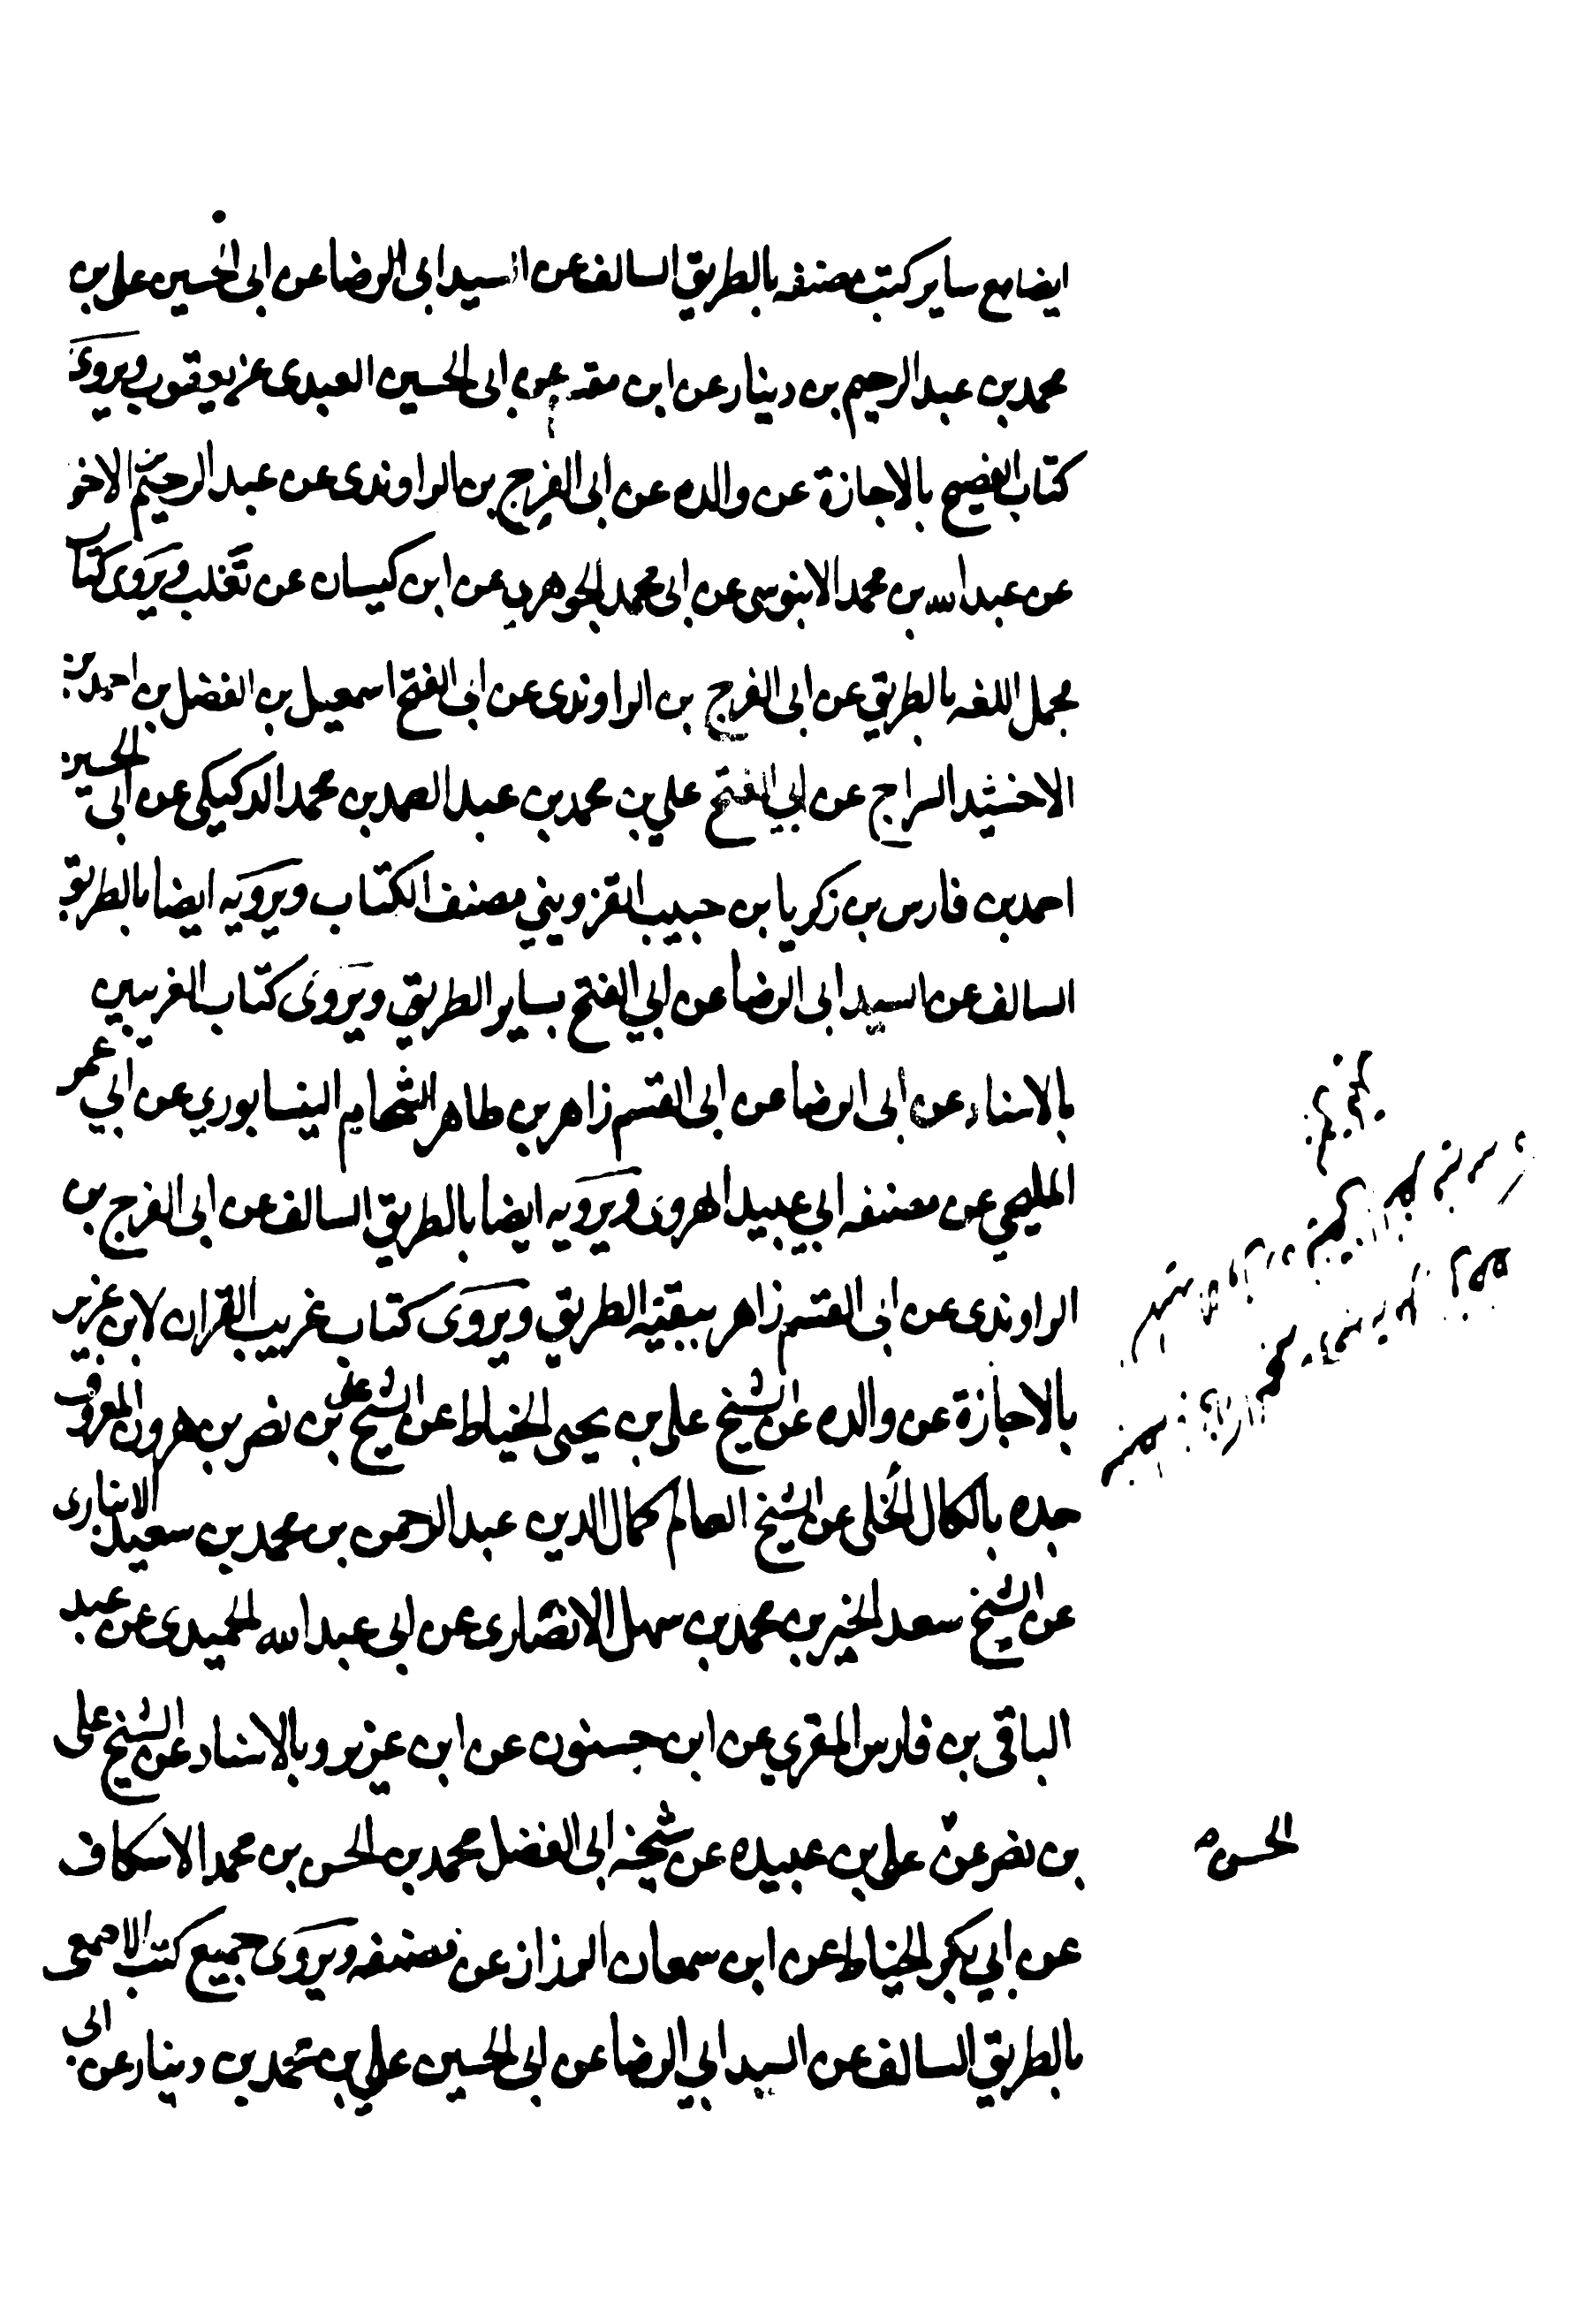 ايضا مع ساير كتب مصنفه بالطريق السالف عن السيد ابى الرضا عن ابى الحسين على بن
محمد بن عبد الرحيم بن دينار عن ابن مقله عن ابى الحسين العبدى عن يعقوب ويروى
كتاب الفصيح بالاجازة عن والده عن ابى الفرج بن الراوندى عن عبد الرحيم الاخو
عن عبد الله بن محمد الابنوسى عن ابى محمد الجوهري عن ابن كيسان عن ثعلب ويروى كتاب
مجمل اللغه بالطريق عن ابى الفرج بن الراوندى عن ابى الفتح اسمعيل بن الفضل بن احمد بن
الاخشيد السراج عن ابي الفتح علي بن محمد بن عبد الصمد بن محمد الدكيكى عن ابى الحسين
احمد بن فارس بن زكريا بن حبيب القزويني مصنف الكتاب ويرويه ايضا بالطريق
السالف عن السيد ابى الرضا عن ابي الفتح بساير الطريق ويروى كتاب الغريبين
بالاسناد عن ابى الرضا عن ابى القسم زاهر بن طاهر الشحامى النيسابوري عن ابي عمر
المليحي عن مصنفه ابي عبيد الهروى ويرويه ايضا بالطريق السالف عن ابى الفرج بن
الراوندى عن ابى القسم زاهر ببقية الطريق ويروى كتاب غريب القران لابن عزيز
بالاجازة عن والده عن الشيخ على بن يحيى الخياط عن الشيخ على بن نصر بن هرون المعروف
جده بالكال الحلى عن الشيخ العالم كمال الدين عبد الرحمن بن محمد بن سعيد الانبارى
عن الشيخ سعد الخير بن محمد بن سهل الانصارى عن ابى عبد الله الحميدى عن عبد
الباقى بن فارس المقري عن ابن حسنون عن ابن عزيز وبالاسناد عن الشيخ على
بن نصر عن على بن عبيده عن شيخه ابى الفضل محمد بن الحسن بن محمد الاسكاف
الحسن
عن ابي بكر الخياط عن ابن سمعان الرزاز عن مصنفه ويروى جميع كتب الاصمعى
بالطريق السالف عن السيد ابي الرضا عن ابى الحسين علي بن محمد بن دينار عن ابى